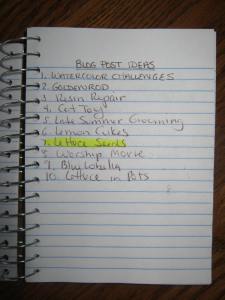 BLOG POST IDEAS
1. WATERCOLOR CHALLENGES
2. GOLDENROD
3. Resin Repair
4. Cat Toys
5. Late Summer Grooming
6. Lemon Cukes
7. Lettuce Seeds
8. Worship Movie
9. Blue Lobelia
10. Lettuce in Pots